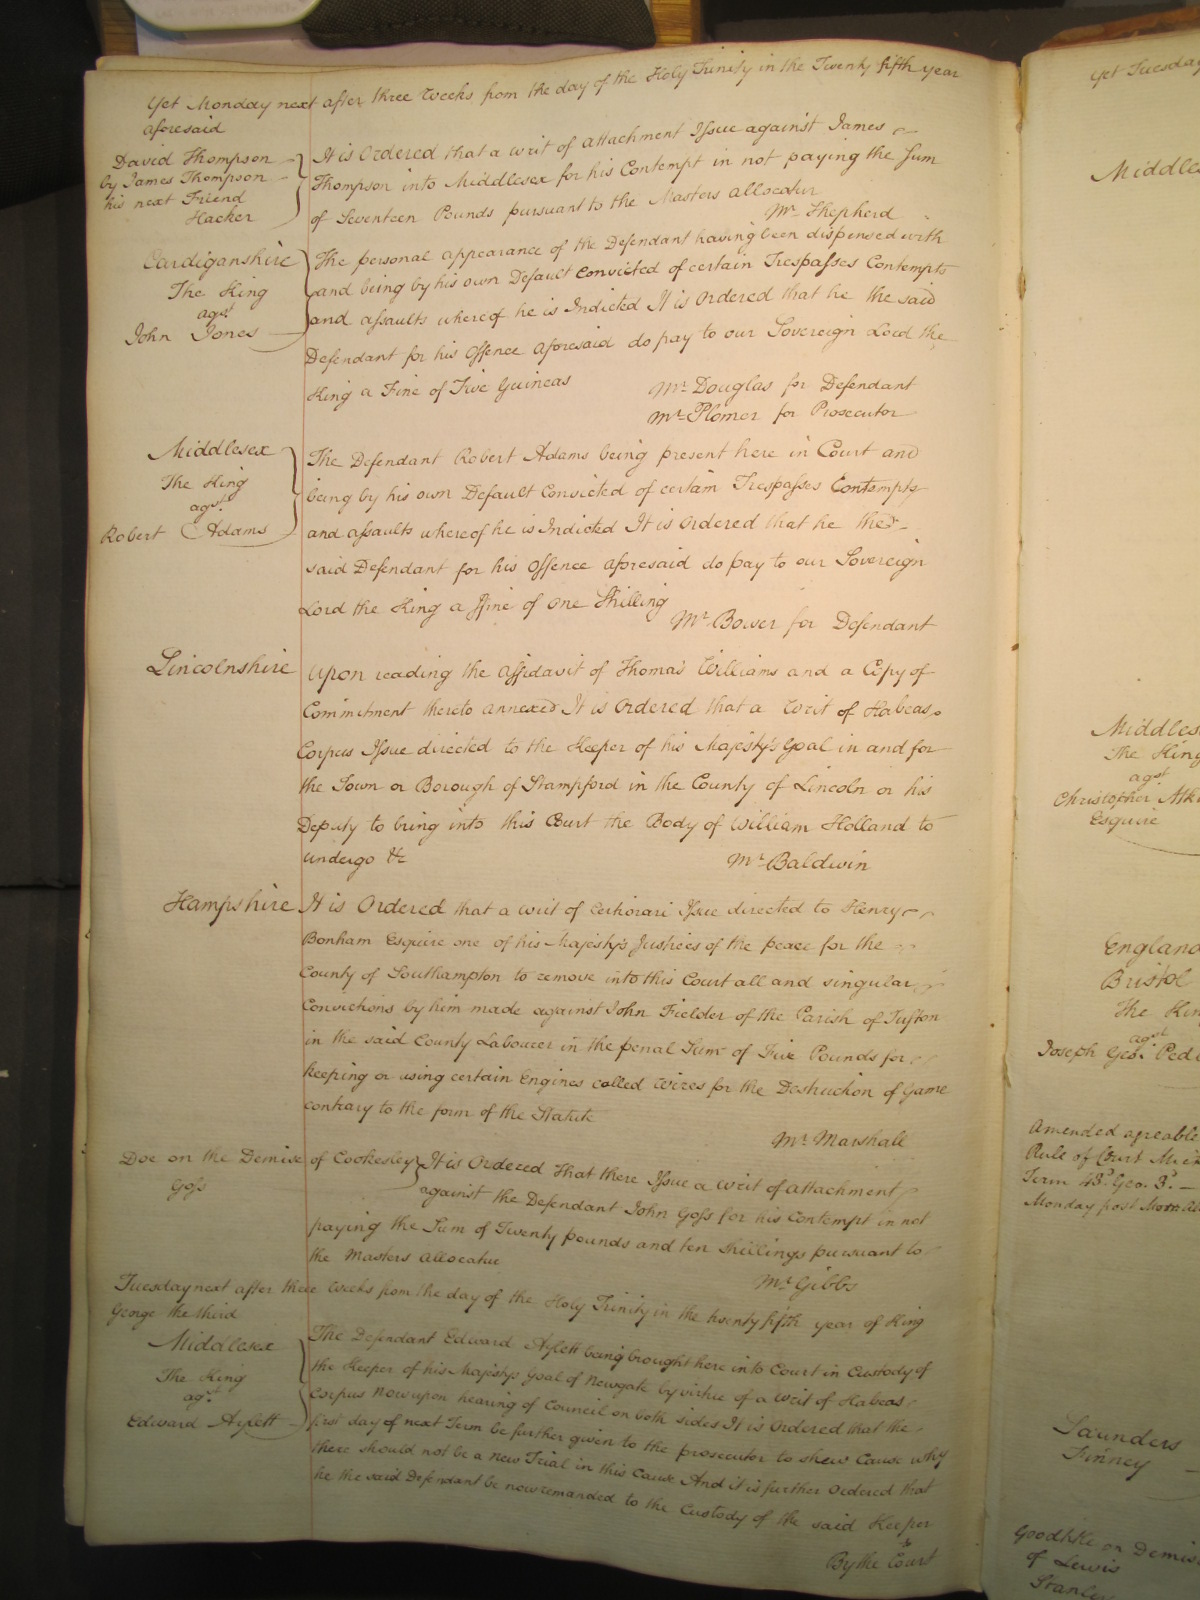 Yet Monday next after three Weeks from the day of the Holy Trinity in the Twenty fifth year
aforesaid
David Thompson
by James Thompson
his next Friend
Hacker
It is Ordered that a writ of attachment Issue against James
Thompson into Middlesex for his Contempt in not paying the Sum
of Seventeen Pounds pursuant to the Masters allocatur
Mr. Shepherd
Cardiganshire
The King
agst
John Jones
The personal appearance of the Defendant having been dispensed with
and being by his own Default Convicted of certain Trespasses Contempts
and assaults whereof he is Indicted It is Ordered that he the said
Defendant for his Offence aforesaid do pay to our Sovereign Lord the
King a Fine of Five Guineas
Mr. Douglas for Defendant
Mr. Plomer for Prosecutor
Middlesex
The King
agst.
Robert Adams
The Defendant Robert Adams being present here in Court and
being by his own Default Convicted of certain Trespasses Contempts
and assaults whereof he is Indicted It is Ordered that he the
said Defendant for his Offence aforesaid do pay to our Sovereign
Lord the King a ffine of one Shilling
Mr. Bower for Defendant
Lincolnshire
Upon reading the affidavit of Thomas Williams and a Copy of
Commitment thereto annexed It is Ordered that a Writ of Habeas
Corpus Issue directed to the Keeper of his Majesty's Goal in and for
the Town or Borough of Stampford in the County of Lincoln or his
Deputy to bring into this Court the Body of William Holland to
undergo &c
Mr. Baldwin
Hampshire
It is Ordered that a writ of Certiorari Issue directed to Henry
Bonham Esquire one of his Majesty's Justices of the peace for the
County of Southampton to remove into this Court all and singular
Convictions by him made against John Fielder of the Parish of Tufton
in the said County Labourer in the penal Sum of Five Pounds for
keeping or using certain Engines called Wires for the Destruction of Game
contrary to the form of the Statute
Mr. Marshall
Doe on the Demise of Cookesley
Goss
It is Ordered that there Issue a writ of attachment
against the Defendant John Goss for his Contempt in not
paying the Sum of Twenty pounds and ten Shillings pursuant to
the Masters allocatur
Mr. Gibbs
Tuesday next after three Weeks from the day of the Holy Trinity in the twenty fifth year of King
George the third
Middlesex
The King
agt.
Edward Aylett
The Defendant Edward Aylett being brought here into Court in Custody of
the Keeper of his Majesty's Goal of Newgate by virtue of a writ of Habeas
Corpus Now upon hearing of Council on both sides It is Ordered that the
first day of next Term be further given to the prosecutor to shew Cause why
there should not be a new Trial in this Cause And it is further Ordered that
he the said Defendant be now remanded to the Custody of the said Keeper
By the Court
Yet Tuesday
Middles
Middles
The King
agst.
Christopher Atk
Esquire
England
Bristol
The Kin
agst
Joseph Geo. Ped
Amended agreable
Rule of Court
Term 43d. Geo. 3d.
Monday post
Saunders
Finney
Goodtitle on Demis
of Lewis
Stanley